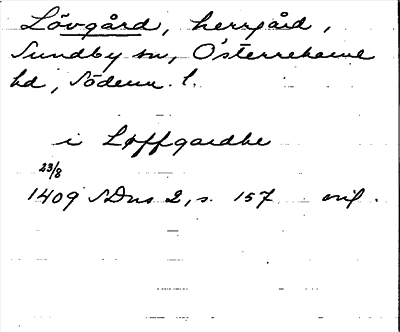 Lövgård, herrgård,
Sundby sn, Österrekarne
hd, Söderm. l.
i Løffgardhe
23/8
1409 SDns 2, s. 157 orig.